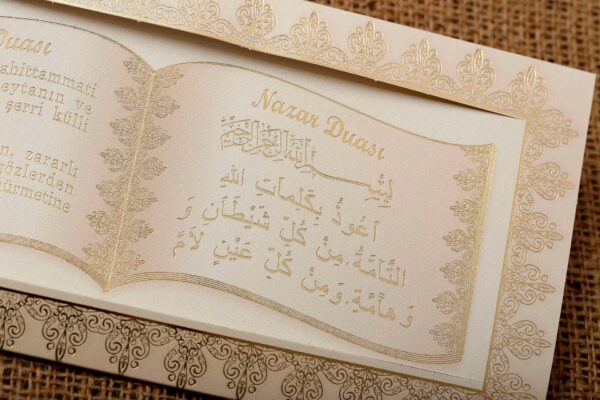 Duası
ahittammati
eytanın ve
şerri külli
n, zararlı
gözlerden
hürmetine
Nazar Duası
بِسْمِ اللهِ الرَّحْمٰنِ الرَّحِيمِ
اَعُوذُ بِكَلِمَاتِ اللهِ
التَّامَّةِ.مِنْ كُلِّ شَيْطَانٍ وَ
وَ هَامَّةٍ.وَمِنْ كُلِّ عَيْنٍ لاَمَّ